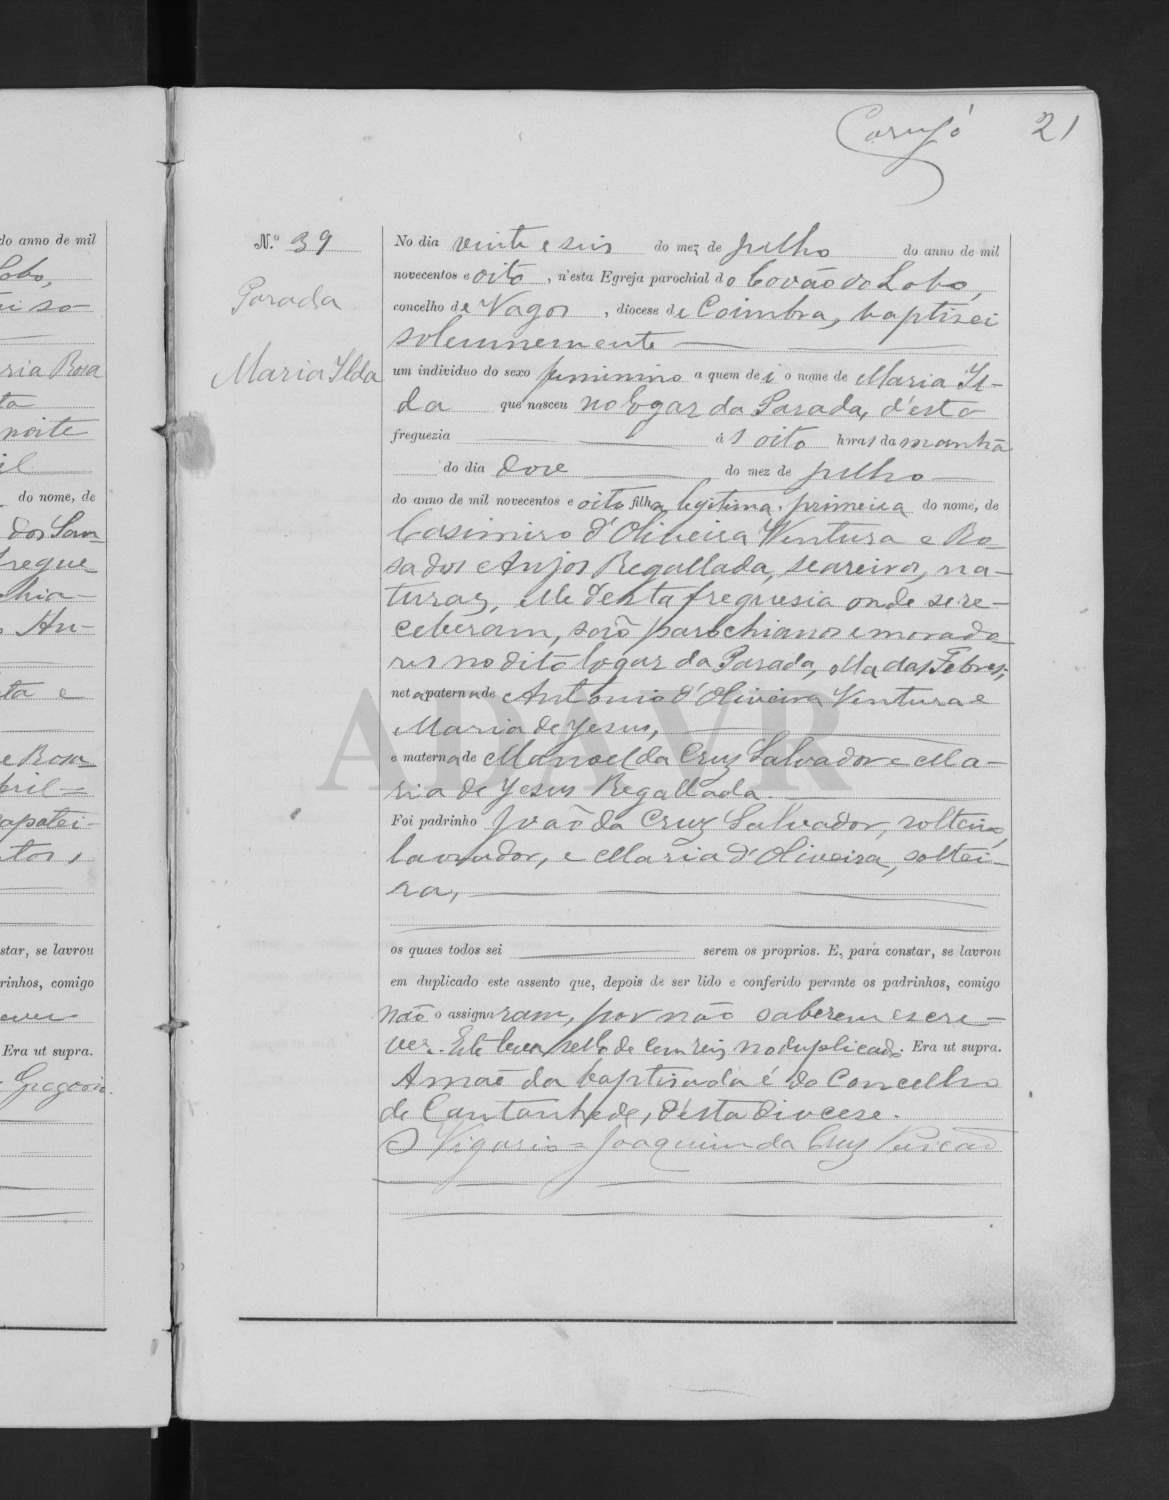 Carujó 21
N.º 39
Parada
Maria Ilda
No dia vinte e seis do mez de julho do anno de mil
novecentos e oito, n'esta Egreja parochial do Covão do Lobo,
concelho de Vagos, diocese de Coimbra, baptisei
solemnemente
um individuo do sexo feminino a quem dei o nome de Maria Il-
da que nasceu no logar da Parada, d'esta
freguezia ás oito horas da manhã
do dia doze do mez de julho
do anno de mil novecentos e oito filha legitima, primeira do nome, de
Casimiro d'Oliveira Ventura e Ro-
sa dos Anjos Regallada, seareiros, na-
turaes, elle d'esta freguesia onde se re-
ceberam, são parochianos e morado
res no dito logar da Parada, ella das Febres;
neta paterna de Antonio d'Oliveira Ventura e
Maria de Jesus,
e materna de Manoel da Cruz Salvador e Ma-
ria de Jesus Regallada.
Foi padrinho João da Cruz Salvador, solteiro,
lavrador, e Maria d'Oliveira, soltei-
ra,
os quaes todos sei serem os proprios. E, para constar, se lavrou
em duplicado este assento que, depois de ser lido e conferido perante os padrinhos, comigo
não o assignaram, por não saberem escre-
ver. Este leva sello de cem reis no duplicado. Era ut supra.
A mãe da baptisada é do Concelho
de Cantanhede, d'esta Diocese.
O Vigario = Joaquim da Cruz
do anno de mil
Lobo,
ria Rosa
ta
noite
il
do nome, de
dos San
fregue
chia-
Hu-
ta e
e Rosa
bril =
apatei-
tos,
star, se lavrou
rinhos, comigo
ever
Era ut supra.
Gregorio
ADAVR